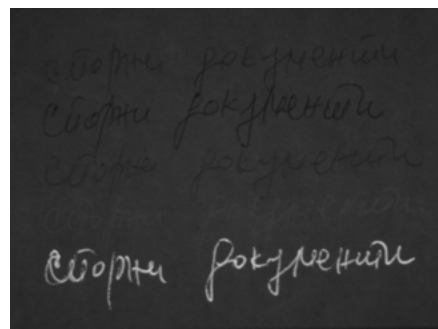 спорни документи
спорни документи
спорни документи
спорни документи
спорни документи